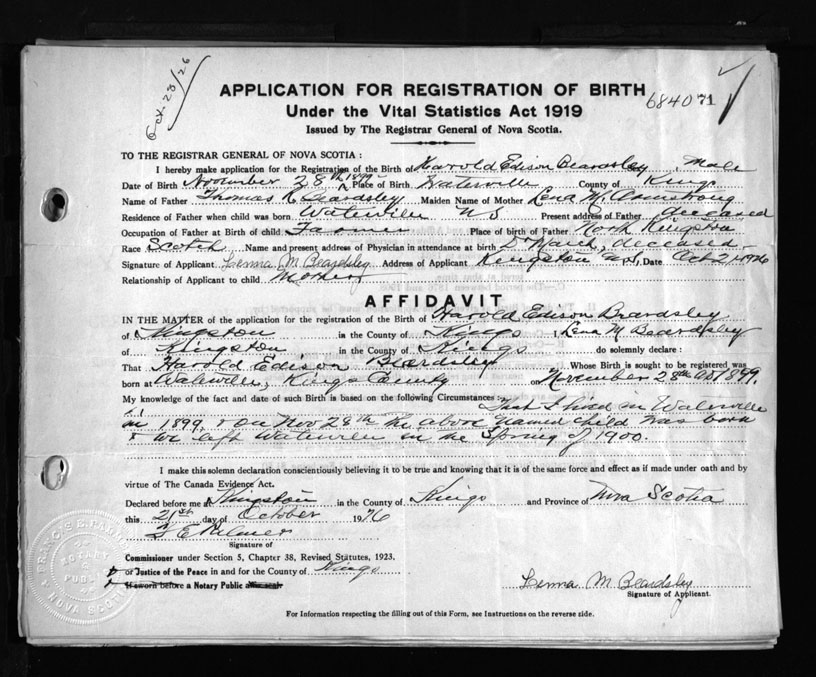 Oct. 23/26
APPLICATION FOR REGISTRATION OF BIRTH
684071
Under the Vital Statistics Act 1919
Issued by The Registrar General of Nova Scotia.
TO THE REGISTRAR GENERAL OF NOVA SCOTIA:
I hereby make application for the Registration of the Birth of Harold Edison Beardsley Male
Date of Birth November 28th 1899 Place of Birth Waterville County of Kings
Name of Father Thomas Beardsley Maiden Name of Mother Lena M. Armstrong
Residence of Father when child was born Waterville NS Present address of Father deceased
Occupation of Father at Birth of child Farmer Place of birth of Father North Kingston
Race Scotch Name and present address of Physician in attendance at birth Dr deceased
Signature of Applicant Lenna M Beardsley Address of Applicant Kingston N.S, Date Oct 21, 1926
Relationship of Applicant to child Mother
AFFIDAVIT
IN THE MATTER of the application for the registration of the Birth of Harold Edison Beardsley
of Kingston in the County of Kings I, Lena M Beardsley
of Kingston in the County of Kings do solemnly declare:
That Harold Edison Beardsley Whose Birth is sought to be registered was
born at Waterville, Kings County on November 28th AD 1899.
My knowledge of the fact and date of such Birth is based on the following Circumstances:
That I lived in Waterville
in 1899, & on Nov 28th the above named child was born
& we left Waterville in the Spring of 1900.
I make this solemn declaration conscientiously believing it to be true and knowing that it is of the same force and effect as if made under oath and by
virtue of The Canada Evidence Act.
Declared before me at Kingston in the County of Kings and Province of Nova Scotia
this 21st day of October 1926
Signature of
Commissioner under Section 5, Chapter 38, Revised Statutes, 1923.
or Justice of the Peace in and for the County of Kings
If sworn before a Notary Public
Lenna M Beardsley
Signature of Applicant.
For Information respecting the filling out of this Form, see Instructions on the reverse side.
NOTARY PUBLIC
NOVA SCOTIA